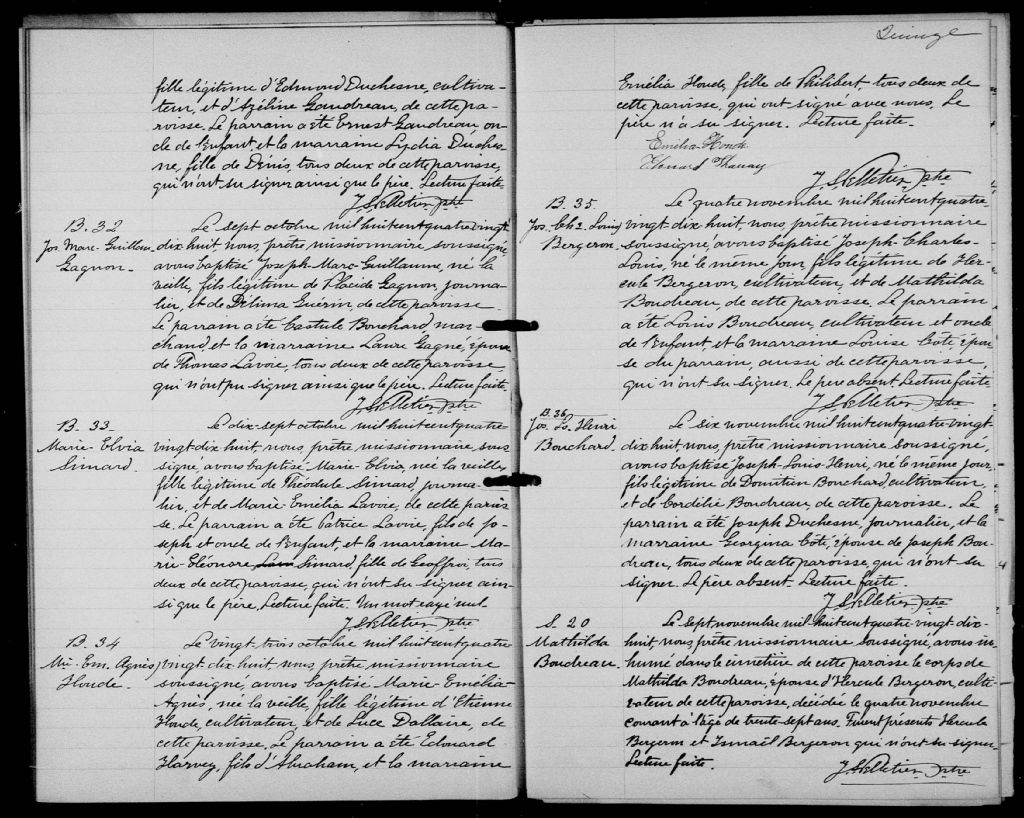 fille légitime d'Edmond Duchesne, cultiva-
teur, et d'Azéline Gaudreau, de cette pa-
roisse. Le parrain a été Ernest Gaudreau on-
cle de l'enfant, et la marraine Lydia Duches-
ne, fille de Dénis, tous deux de cette paroisse,
qui n'ont su signer ainsi que le père. Lecture faite.
J S Pelletier ptre
B. 32
Jos. Marc-Guillau.
Gagnon.
Le sept octobre mil huit cent quatre vingt
dix huit, nous, prêtre missionnaire soussigné,
avons baptisé Joseph-Marc-Guillaume, né la
veille, fils légitime de Placide Gagnon, journa-
lier, et de Délima Guérin, de cette paroisse
Le parrain a été Castule Bouchard, mar-
chand, et la marraine Laure Gagné, épouse
de Thomas Lavoie, tous deux de cette paroisse,
qui n'ont pu signer ainsi que le père. Lecture faite.
J S Pelletier ptre
B. 33
Marie-Elvia
Simard.
Le dix-sept octobre mil huit cent quatre
vingt dix huit, nous, prêtre missionnaire sous
signé, avons baptisé Marie-Elvia, née la veille,
fille légitime de Théodule Simard, journa-
lier, et de Marie-Emélia Lavoie, de cette parois-
se. Le parrain a été Patrice Lavoie, fils de Jo-
seph et oncle de l'enfant, et la marraine Ma-
rie-Eléonore Simard, fille de Geoffroi, tous
deux de cette paroisse, qui n'ont su signer ain-
si que le père. Lecture faite. Un mot rayé nul
J S Pelletier ptre
B. 34
Mie-Em. Agnès
Houde.
Le vingt trois octobre mil huit cent quatre
vingt dix huit, nous, prêtre missionnaire
soussigné, avons baptisé Marie-Emélia-
Agnès, née la veille, fille légitime d'Etienne
Houde, cultivateur, et de Luce Dallaire, de
cette paroisse. Le parrain a été Edouard
Harvey, fils d'Abraham, et la marraine
Quinze
Emélia Houde, fille de Philibert, tous deux de
cette paroisse, qui ont signé avec nous. Le
père n'a su signer. Lecture faite.
Emélia Houde
Edouard Harvay
J. S. Pelletier ptre
B. 35
Jos. Chs. Louis
Bergeron.
Le quatre novembre mil huit cent quatre
vingt dix huit, nous, prêtre missionnaire
soussigné, avons baptisé Joseph-Charles-
Louis, né le même jour, fils légitime de Her-
cule Bergeron, cultivateur, et de Mathilda
Boudreau, de cette paroisse. Le parrain
a été Louis Boudreau, cultivateur et oncle
de l'enfant, et la marraine Louise Côté, épou-
se du parrain, aussi de cette paroisse,
qui n'ont su signer. Le père absent. Lecture faite
J S Pelletier ptre
B. 36
Jos. Ls. Henri
Bouchard.
Le six novembre mil huit cent quatre-vingt
dix huit, nous, prêtre missionnaire soussigné,
avons baptisé Joseph-Louis-Henri, né le même jour,
fils légitime de Donatien Bouchard, cultivateur,
et de Cordélie Boudreau, de cette paroisse. Le
parrain a été Joseph Duchesne, journalier, et la
marraine Georgina Côté, épouse de Joseph Bou-
dreau, tous deux de cette paroisse, qui n'ont su
signer. Le père absent. Lecture faite.
J S Pelletier ptre
S. 20
Mathilda
Boudreau.
Le sept novembre mil huit cent quatre vingt dix-
huit, nous, prêtre missionnaire soussigné, avons in-
humé dans le cimetière de cette paroisse le corps de
Mathilda Boudreau, épouse d'Hercule Bergeron, culti-
vateur de cette paroisse, décédée le quatre novembre
courant à l'âge de trente-sept ans. Furent présents Hercule
Bergeron et Ismaël Bergeron qui n'ont su signer.
Lecture faite.
J. S. Pelletier ptre